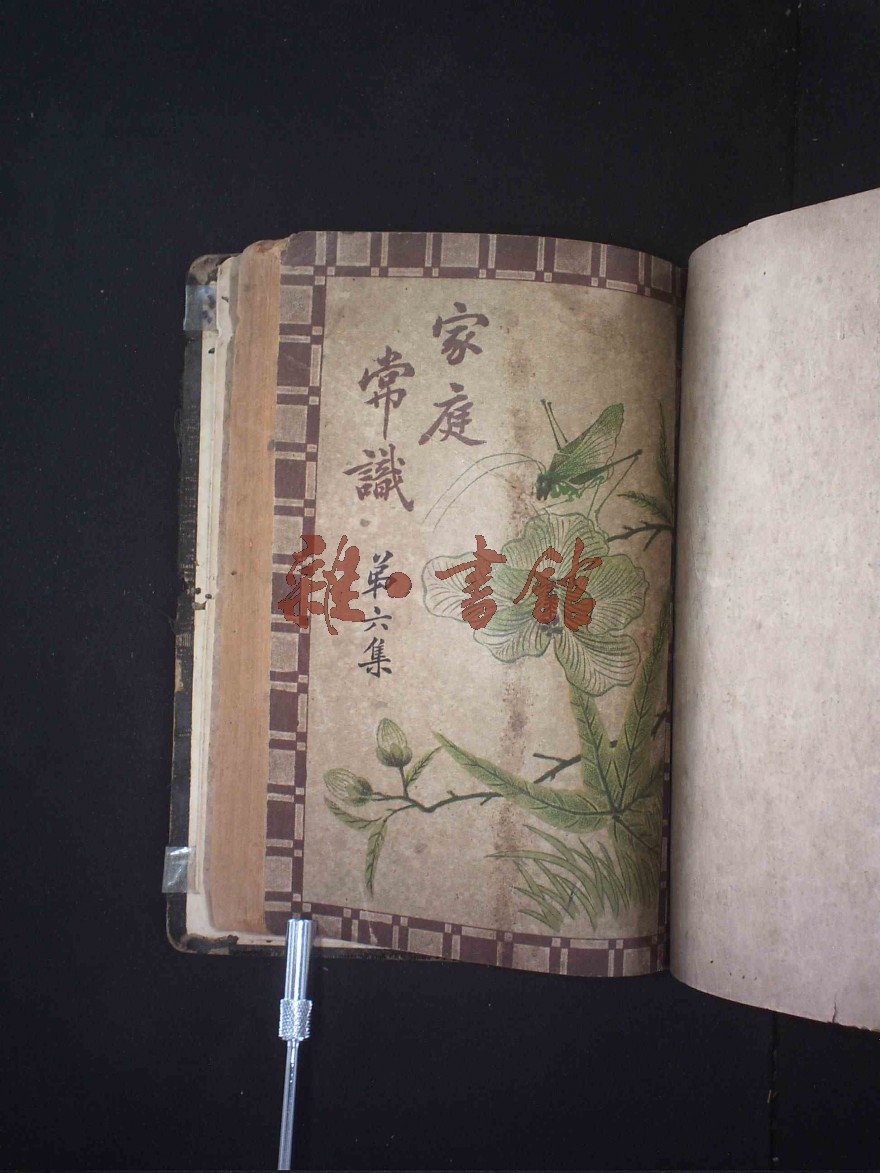 家庭
常識
第六集
雜·書館